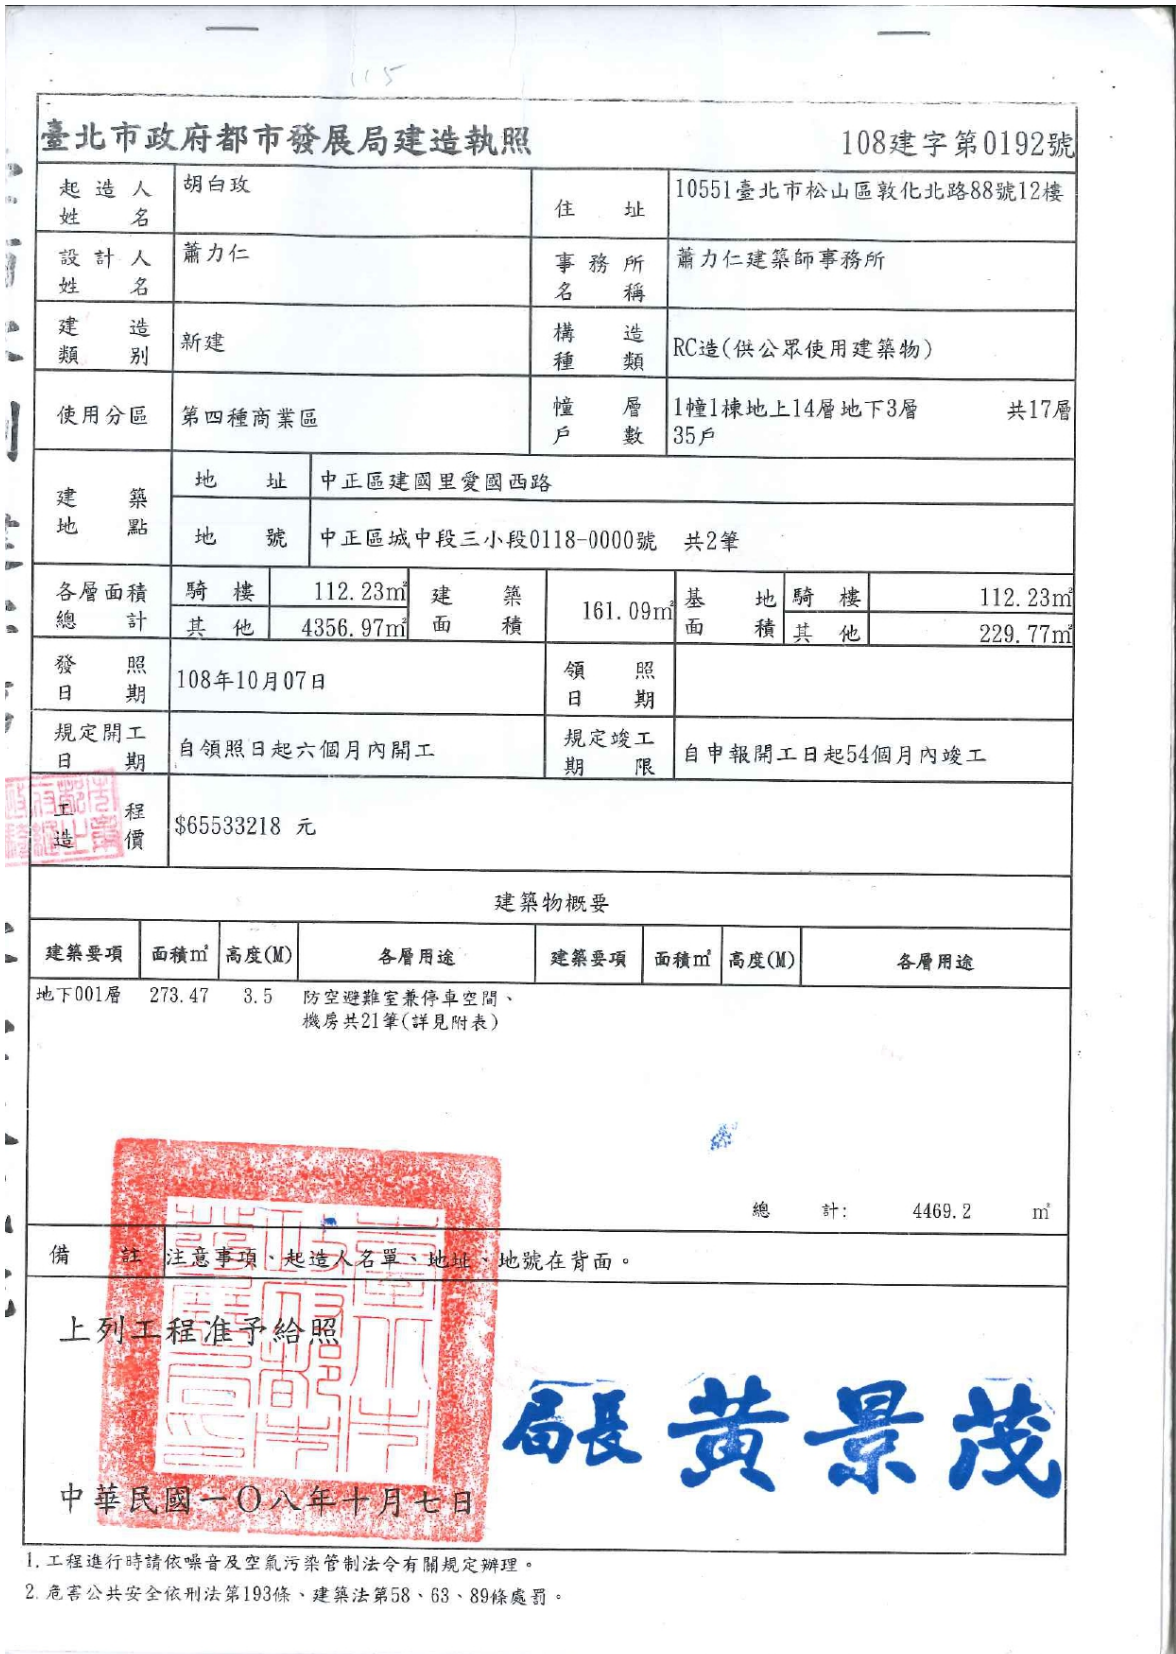 115
臺北市政府都市發展局建造執照 108建字第0192號
起造人姓名 胡白玫 住址 10551臺北市松山區敦化北路88號12樓
設計人姓名 蕭力仁 事務所名稱 蕭力仁建築師事務所
建造類別 新建 構造種類 RC造(供公眾使用建築物)
使用分區 第四種商業區 幢層戶數 1幢1棟地上14層地下3層 共17層
35戶
建築地點 地址 中正區建國里愛國西路
地號 中正區城中段三小段0118-0000號 共2筆
各層面積總計 騎樓 112.23㎡ 建築面積 161.09㎡ 基地面積 騎樓 112.23㎡
其他 4356.97㎡ 其他 229.77㎡
發照日期 108年10月07日 領照日期
規定開工日期 自領照日起六個月內開工 規定竣工期限 自申報開工日起54個月內竣工
工程造價 $65533218 元
建築物概要
建築要項 面積㎡ 高度(M) 各層用途 建築要項 面積㎡ 高度(M) 各層用途
地下001層 273.47 3.5 防空避難室兼停車空間、
機房共21筆(詳見附表)
總計: 4469.2 ㎡
備註 注意事項、起造人名單、地址、地號在背面。
上列工程准予給照
局長 黃景茂
中華民國一〇八年十月七日
1.工程進行時請依噪音及空氣污染管制法令有關規定辦理。
2.危害公共安全依刑法第193條、建築法第58、63、89條處罰。